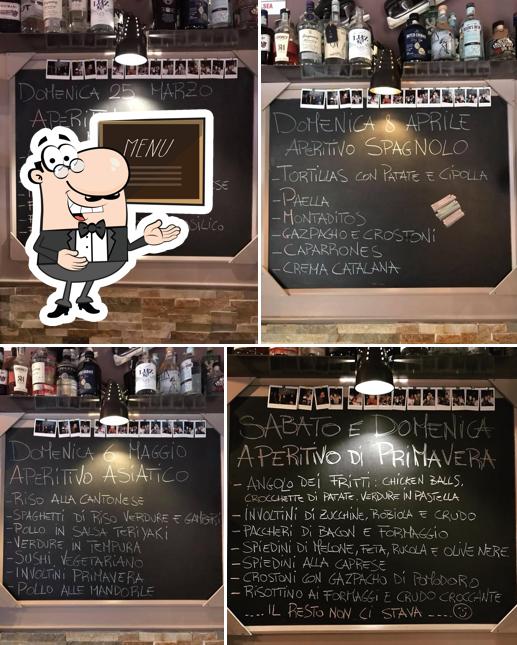 DOMENICA 25 MARZO
MENU
DOMENICA 8 APRILE
APERITIVO SPAGNOLO
- TORTILLAS CON PATATE E CIPOLLA
- PAELLA
- MONTADITOS
- GAZPACHO E CROSTONI
- CAPARRONES
- CREMA CATALANA
DOMENICA 6 MAGGIO
APERITIVO ASIATICO
- RISO ALLA CANTONESE
- SPAGHETTI DI RISO VERDURE E GAMBERI
- POLLO IN SALSA TERIYAKI
- VERDURE IN TEMPURA
- SUSHI VEGETARIANO
- INVOLTINI PRIMAVERA
- POLLO ALLE MANDORLE
SABATO E DOMENICA
APERITIVO DI PRIMAVERA
- ANGOLO DEI FRITTI: CHICKEN BALLS,
CROCCHETTE DI PATATE, VERDURE IN PASTELLA
- INVOLTINI DI ZUCCHINE, ROBIOLA E CRUDO
- PACCHERI DI BACON E FORMAGGIO
- SPIEDINI DI MELONE, FETA, RUCOLA E OLIVE NERE
- SPIEDINI ALLA CAPRESE
- CROSTONI CON GAZPACHO DI POMODORO
- RISOTTINO AI FORMAGGI E CRUDO CROCCANTE
.... IL RESTO NON CI STAVA ....